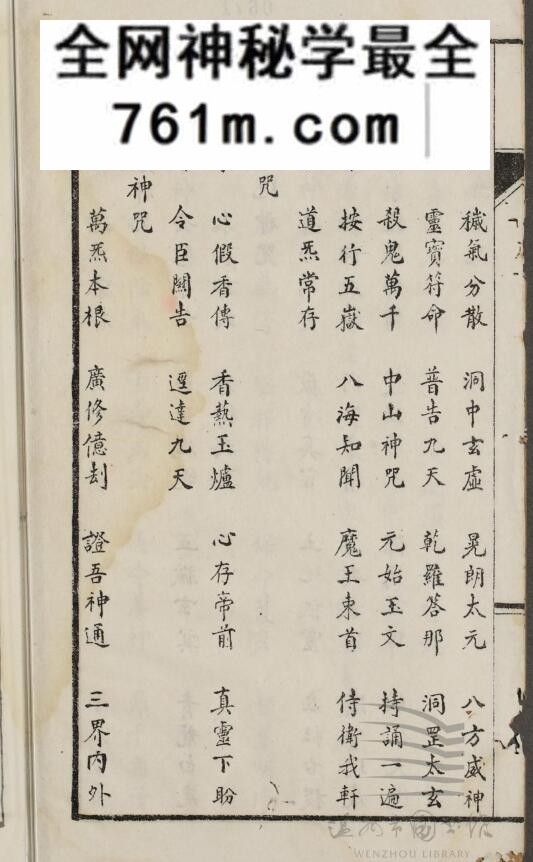 全网神秘学最全
761m.com
穢氣分散 洞中玄虛 晃朗太元 八方威神
靈寶符命 普告九天 乾羅答那 洞罡太玄
殺鬼萬千 中山神咒 元始玉文 持誦一遍
按行五嶽 八海知聞 魔王束首 侍衛我軒
道炁常存
咒
心假香傳 香爇玉爐 心存帝前 真靈下盼
令臣關告 逕達九天
神咒
萬炁本根 廣修億刦 證吾神通 三界內外
溫州市圖書館
WENZHOU LIBRARY